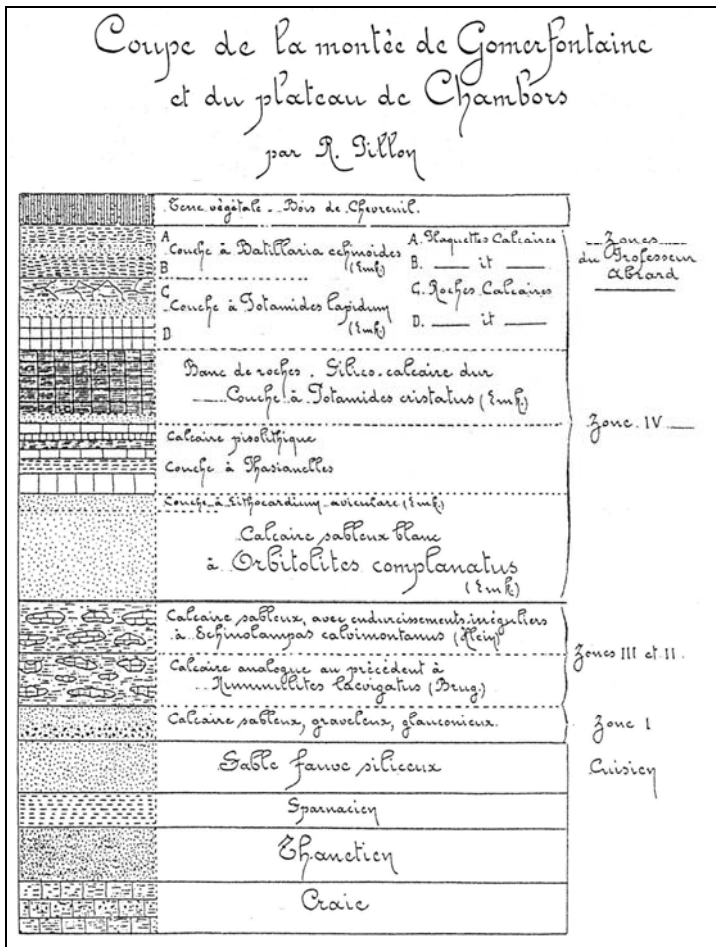 Coupe de la montée de Gomerfontaine
et du plateau de Chambors
par R. Pillon
Terre végétale - Bois de Chevreuil.
Zones
du Professeur
Abrard
A
Couche à Batillaria echinoides
(Lmk.)
B
A. Plaquettes Calcaires
B. __ it __
C
Couche à Potamides lapidum
(Lmk.)
D
C. Roches Calcaires
D. __ it __
Banc de roches. Silico-calcaire dur
Couche à Potamides cristatus (Lmk.)
Zone IV
Calcaire pisolithique
Couche à Phasianelles
Couche à Lithocardium aviculare (Lmk.)
Calcaire sableux blanc
à Orbitolites complanatus
(Lmk.)
Calcaire sableux, avec endurcissements irréguliers
à Echinolampas calvimontanus (Klein)
Zones III et II.
Calcaire analogue au précédent à
Nummulites laevigatus (Brug.)
Calcaire sableux, graveleux, glauconieux.
Zone I
Sable fauve siliceux
Cuisien
Sparnacien
Thanétien
Craie